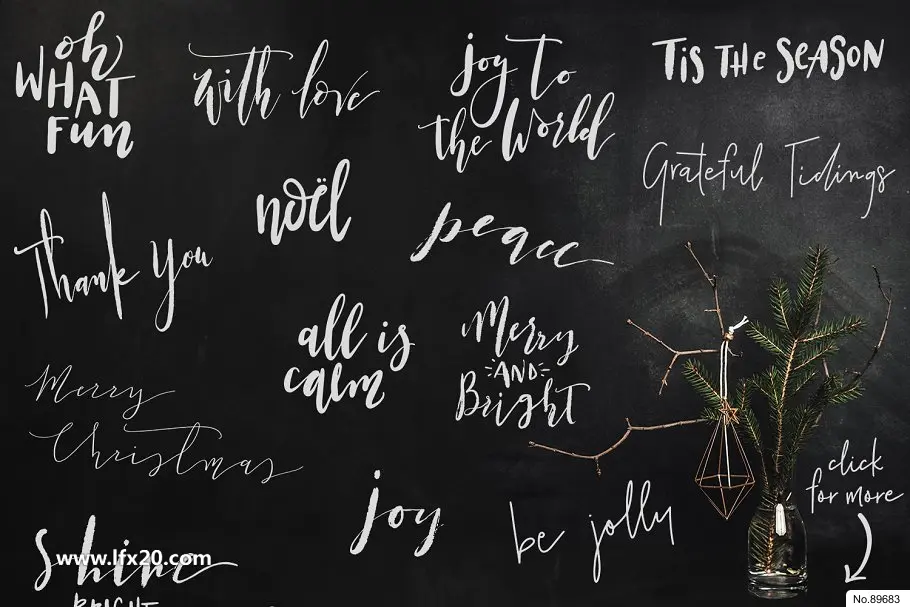 oh
WHAT
Fun
with love
joy to
the World
Tis THe SeASON
Grateful Tidings
noël
Thank You
peace
all is
calm
Merry
AND
Bright
Merry
Christmas
joy
be jolly
click
for more
Shine
www.lfx20.com
BRIGHT
No.89683